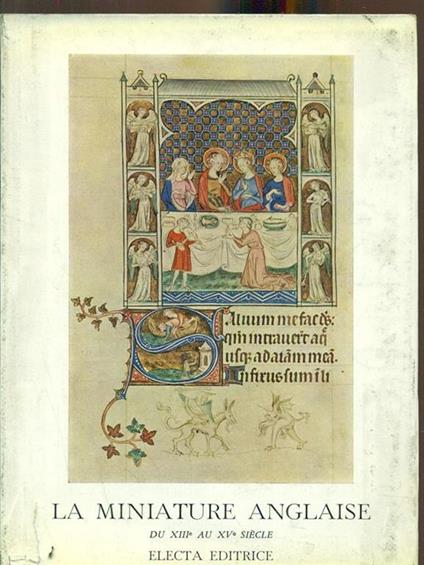 Aluum me fac ds:
qm intrauert aq̄
usq; ad aiām meā.
Infixus sum ī li
LA MINIATURE ANGLAISE
DU XIIIe AU XVe SIÈCLE
ELECTA EDITRICE